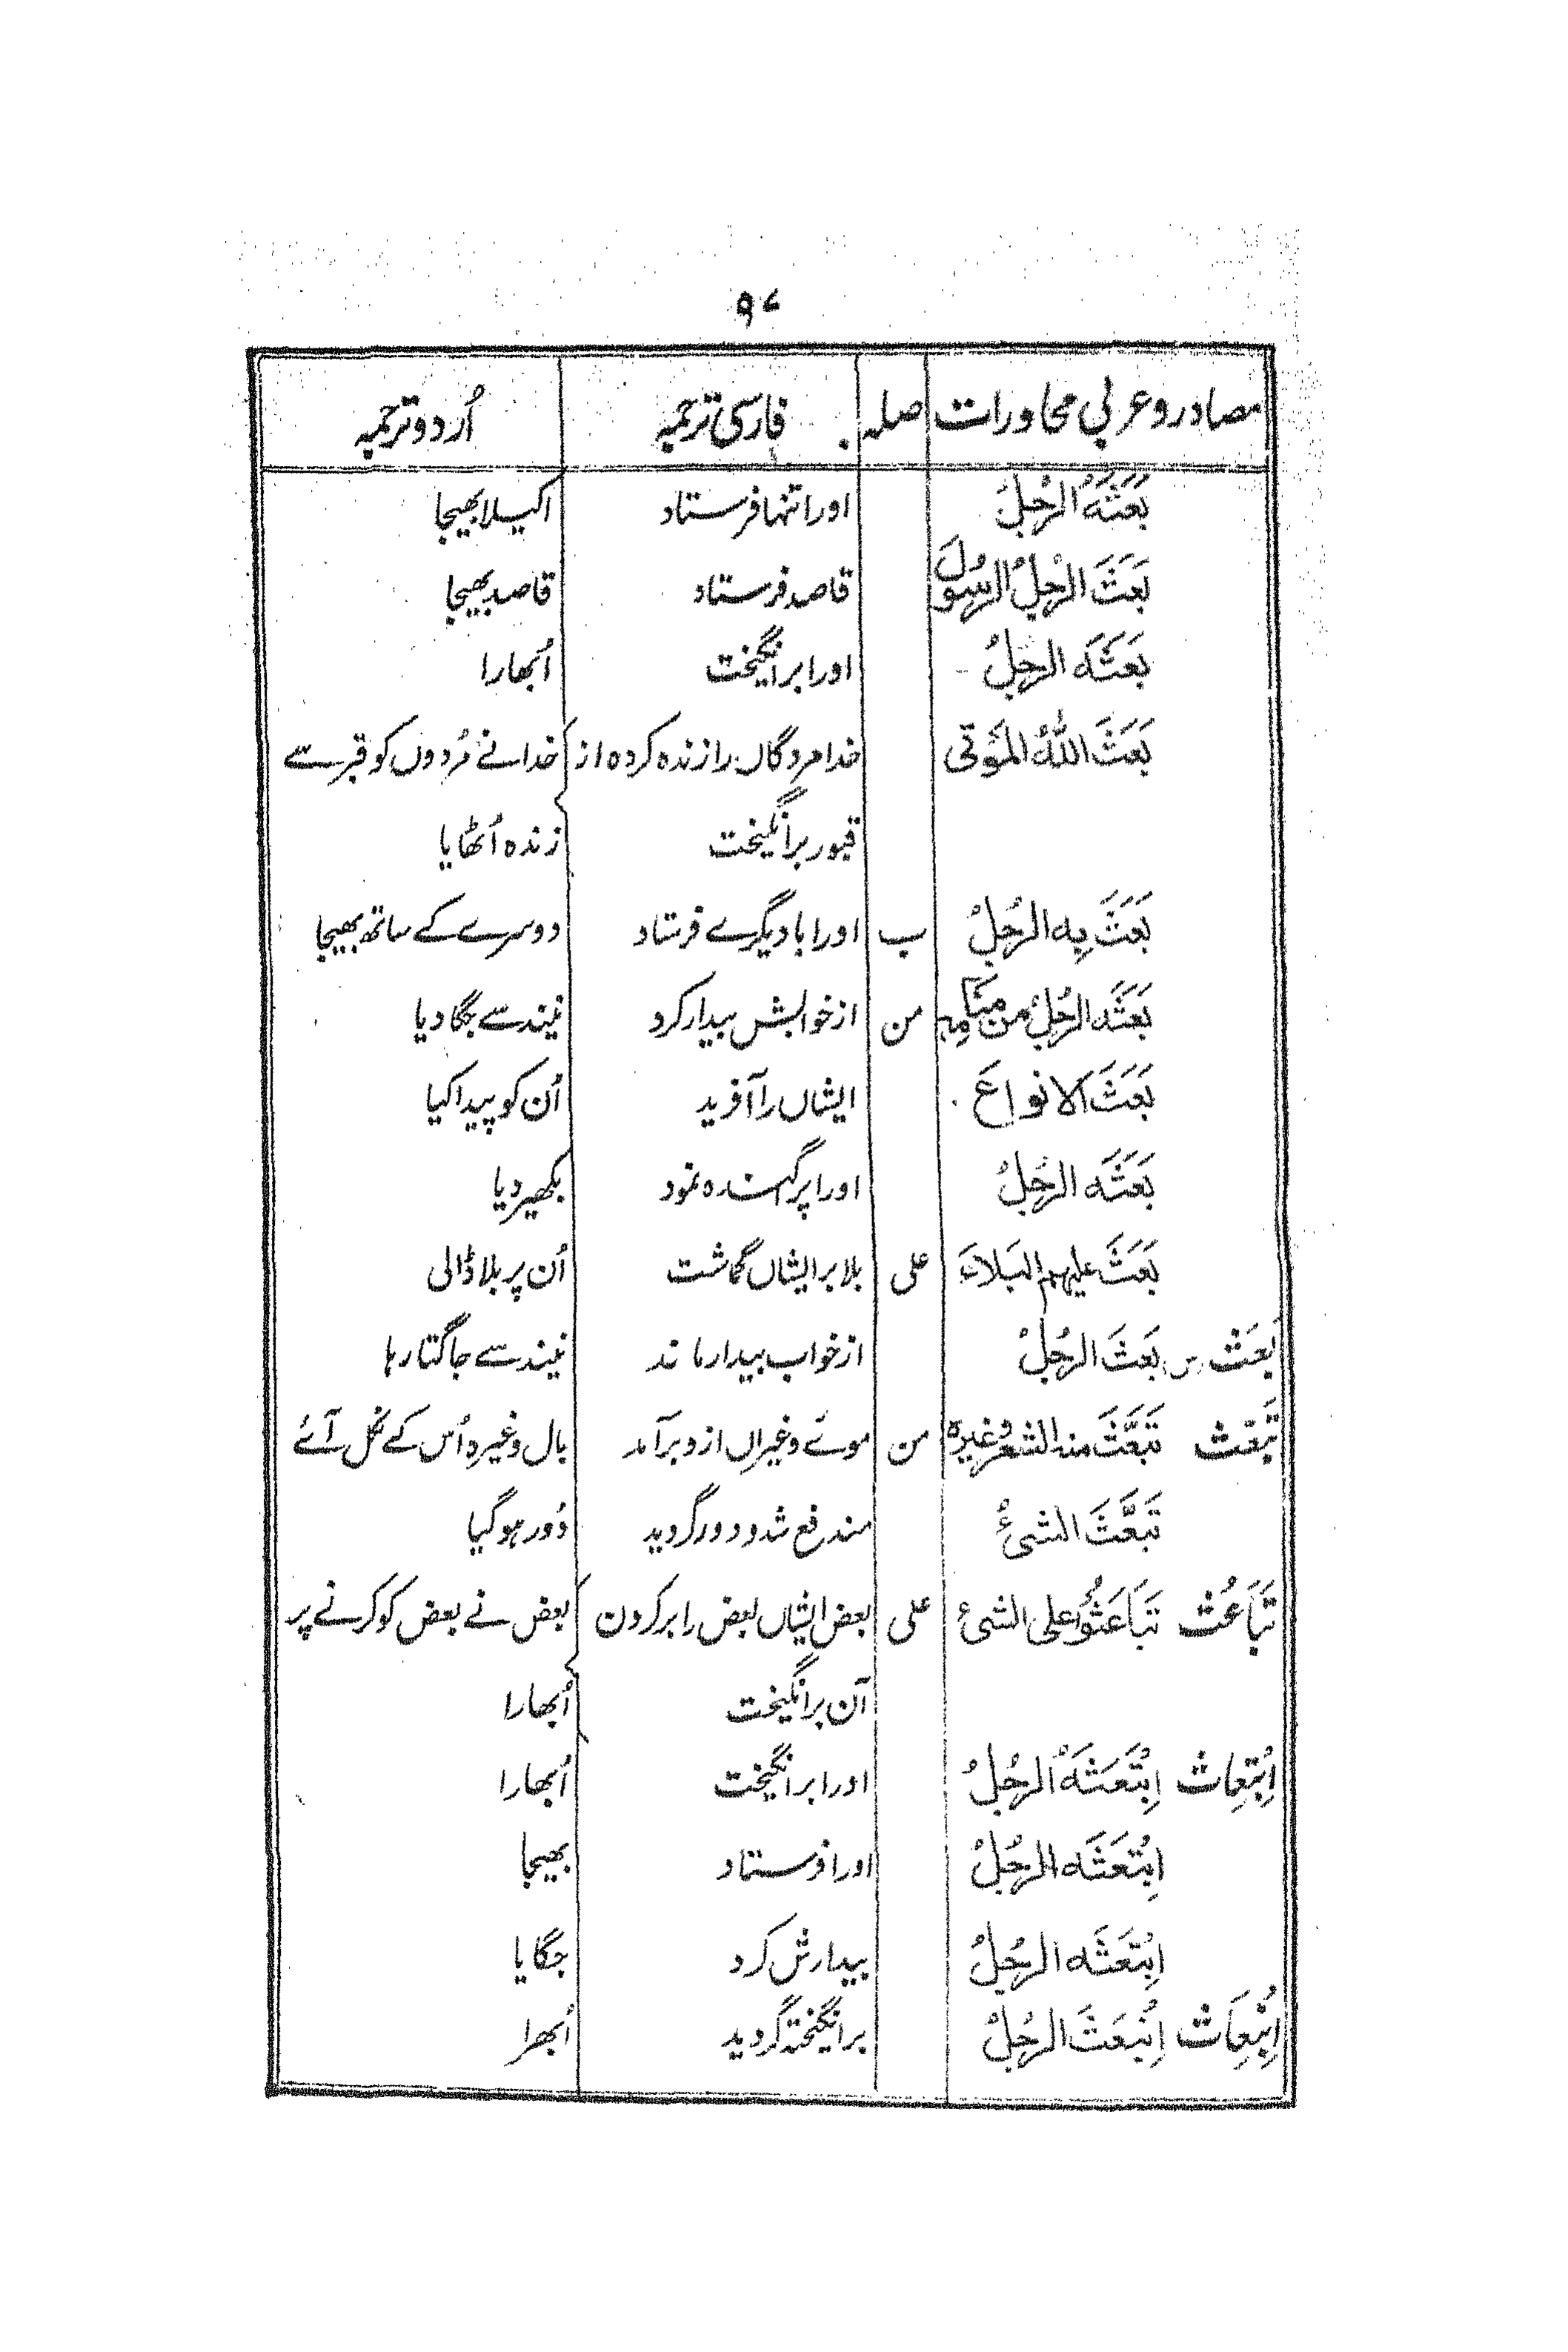 ۹۷
مصادر و عربی محاورات صلہ فارسی ترجمہ اُردو ترجمہ
بَعَثَہُ الرَّجُلُ اورا تنہا فرستاد اکیلا بھیجا
بَعَثَ الرَّجُلُ الرَسُولَ قاصد فرستاد قاصد بھیجا
بَعَثَہ الرجلُ اورا برانگیخت اُبھارا
بَعَثَ اللّٰہُ المَوتی خدا مردگاں را زندہ کردہ از خدا نے مُردوں کو قبر سے
قبور برانگیخت زندہ اُٹھایا
بَعَثَ بِہ الرَجُلُ ب اورا با دیگرے فرستاد دوسرے کے ساتھ بھیجا
بَعَثَہ الرَجُلُ من مَنَامِہ من از خوابش بیدار کرد نیند سے جگا دیا
بَعَثَ الانواعَ ایشاں را آفرید اُن کو پیدا کیا
بَعَثَہ الرَجُلُ اورا پراگندہ نمود بکھیر دیا
بَعَثَ علیہم البَلاءَ علی بلا بر ایشاں گماشت اُن پر بلا ڈالی
بَعَث س بَعِثَ الرَجُلُ از خواب بیدار ماند نیند سے جاگتا رہا
تَبَعُّث تَبَعَّثَ منہ الشعر وغیرہ من موئے وغیراں ازو برآمد بال وغیرہ اُس کے نکل آئے
تَبَعَّثَ الشئُ مندفع شد و دور گردید دُور ہوگیا
تَبَاعُث تَبَاعَثُوا علی الشئ علی بعض ایشاں بعض را بر کردن بعض نے بعض کو کرنے پر
آن برانگیخت اُبھارا
اِبْتِعاث اِبْتَعَثَہ الرَجُلُ اورا برانگیخت اُبھارا
اِبْتَعَثَہ الرَجُلُ اورا فرستاد بھیجا
اِبْتَعَثَہ الرَجُلُ بیدارش کرد جگایا
اِنْبِعَاث اِنْبَعَثَ الرَجُلُ برانگیختہ گردید اُبھرا